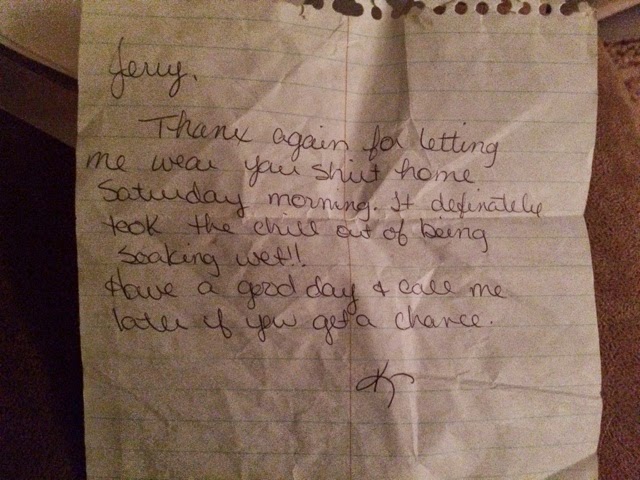 Jerry,
Thanx again for letting
me wear your shirt home
Saturday morning. It definately
took the chill out of being
soaking wet!!
Have a good day & call me
later if you get a chance.
K